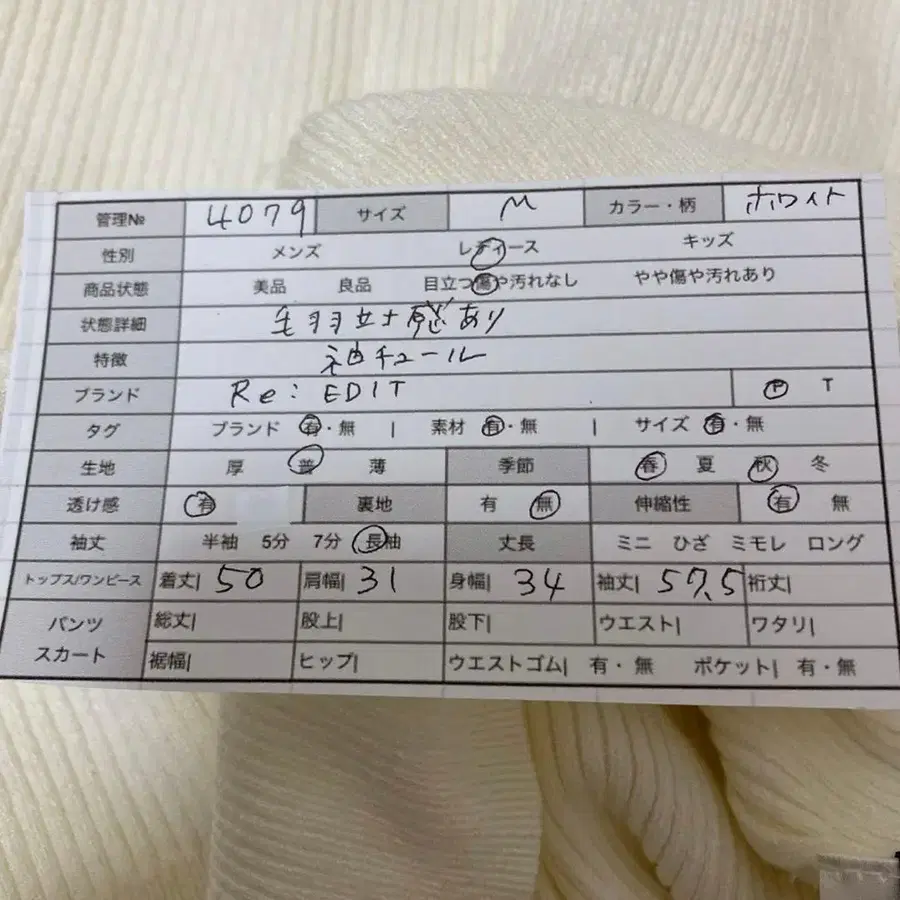 管理№ 4079 サイズ M カラー・柄 ホワイト
性別 メンズ レディース キッズ
商品状態 美品 良品 目立つ傷や汚れなし やや傷や汚れあり
状態詳細 毛羽立ち感あり
特徴 袖チュール
ブランド Re: EDIT P T
タグ ブランド 有・無 | 素材 有・無 | サイズ 有・無
生地 厚 普 薄 季節 春 夏 秋 冬
透け感 有 裏地 有 無 伸縮性 有 無
袖丈 半袖 5分 7分 長袖 丈長 ミニ ひざ ミモレ ロング
トップス/ワンピース 着丈| 50 肩幅| 31 身幅| 34 袖丈| 57.5 裄丈|
パンツ 総丈| 股上| 股下| ウエスト| ワタリ|
スカート 裾幅| ヒップ| ウエストゴム| 有・無 ポケット| 有・無